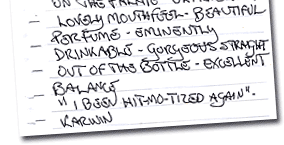 ON THE PALATE
LOVELY MOUTHFEEL - BEAUTIFUL
PERFUME - EMINENTLY
DRINKABLE - GORGEOUS STRAIGHT
OUT OF THE BOTTLE - EXCELLENT
BALANCE
"I BEEN HIT-MO-TIRED AGAIN".
KARWIN